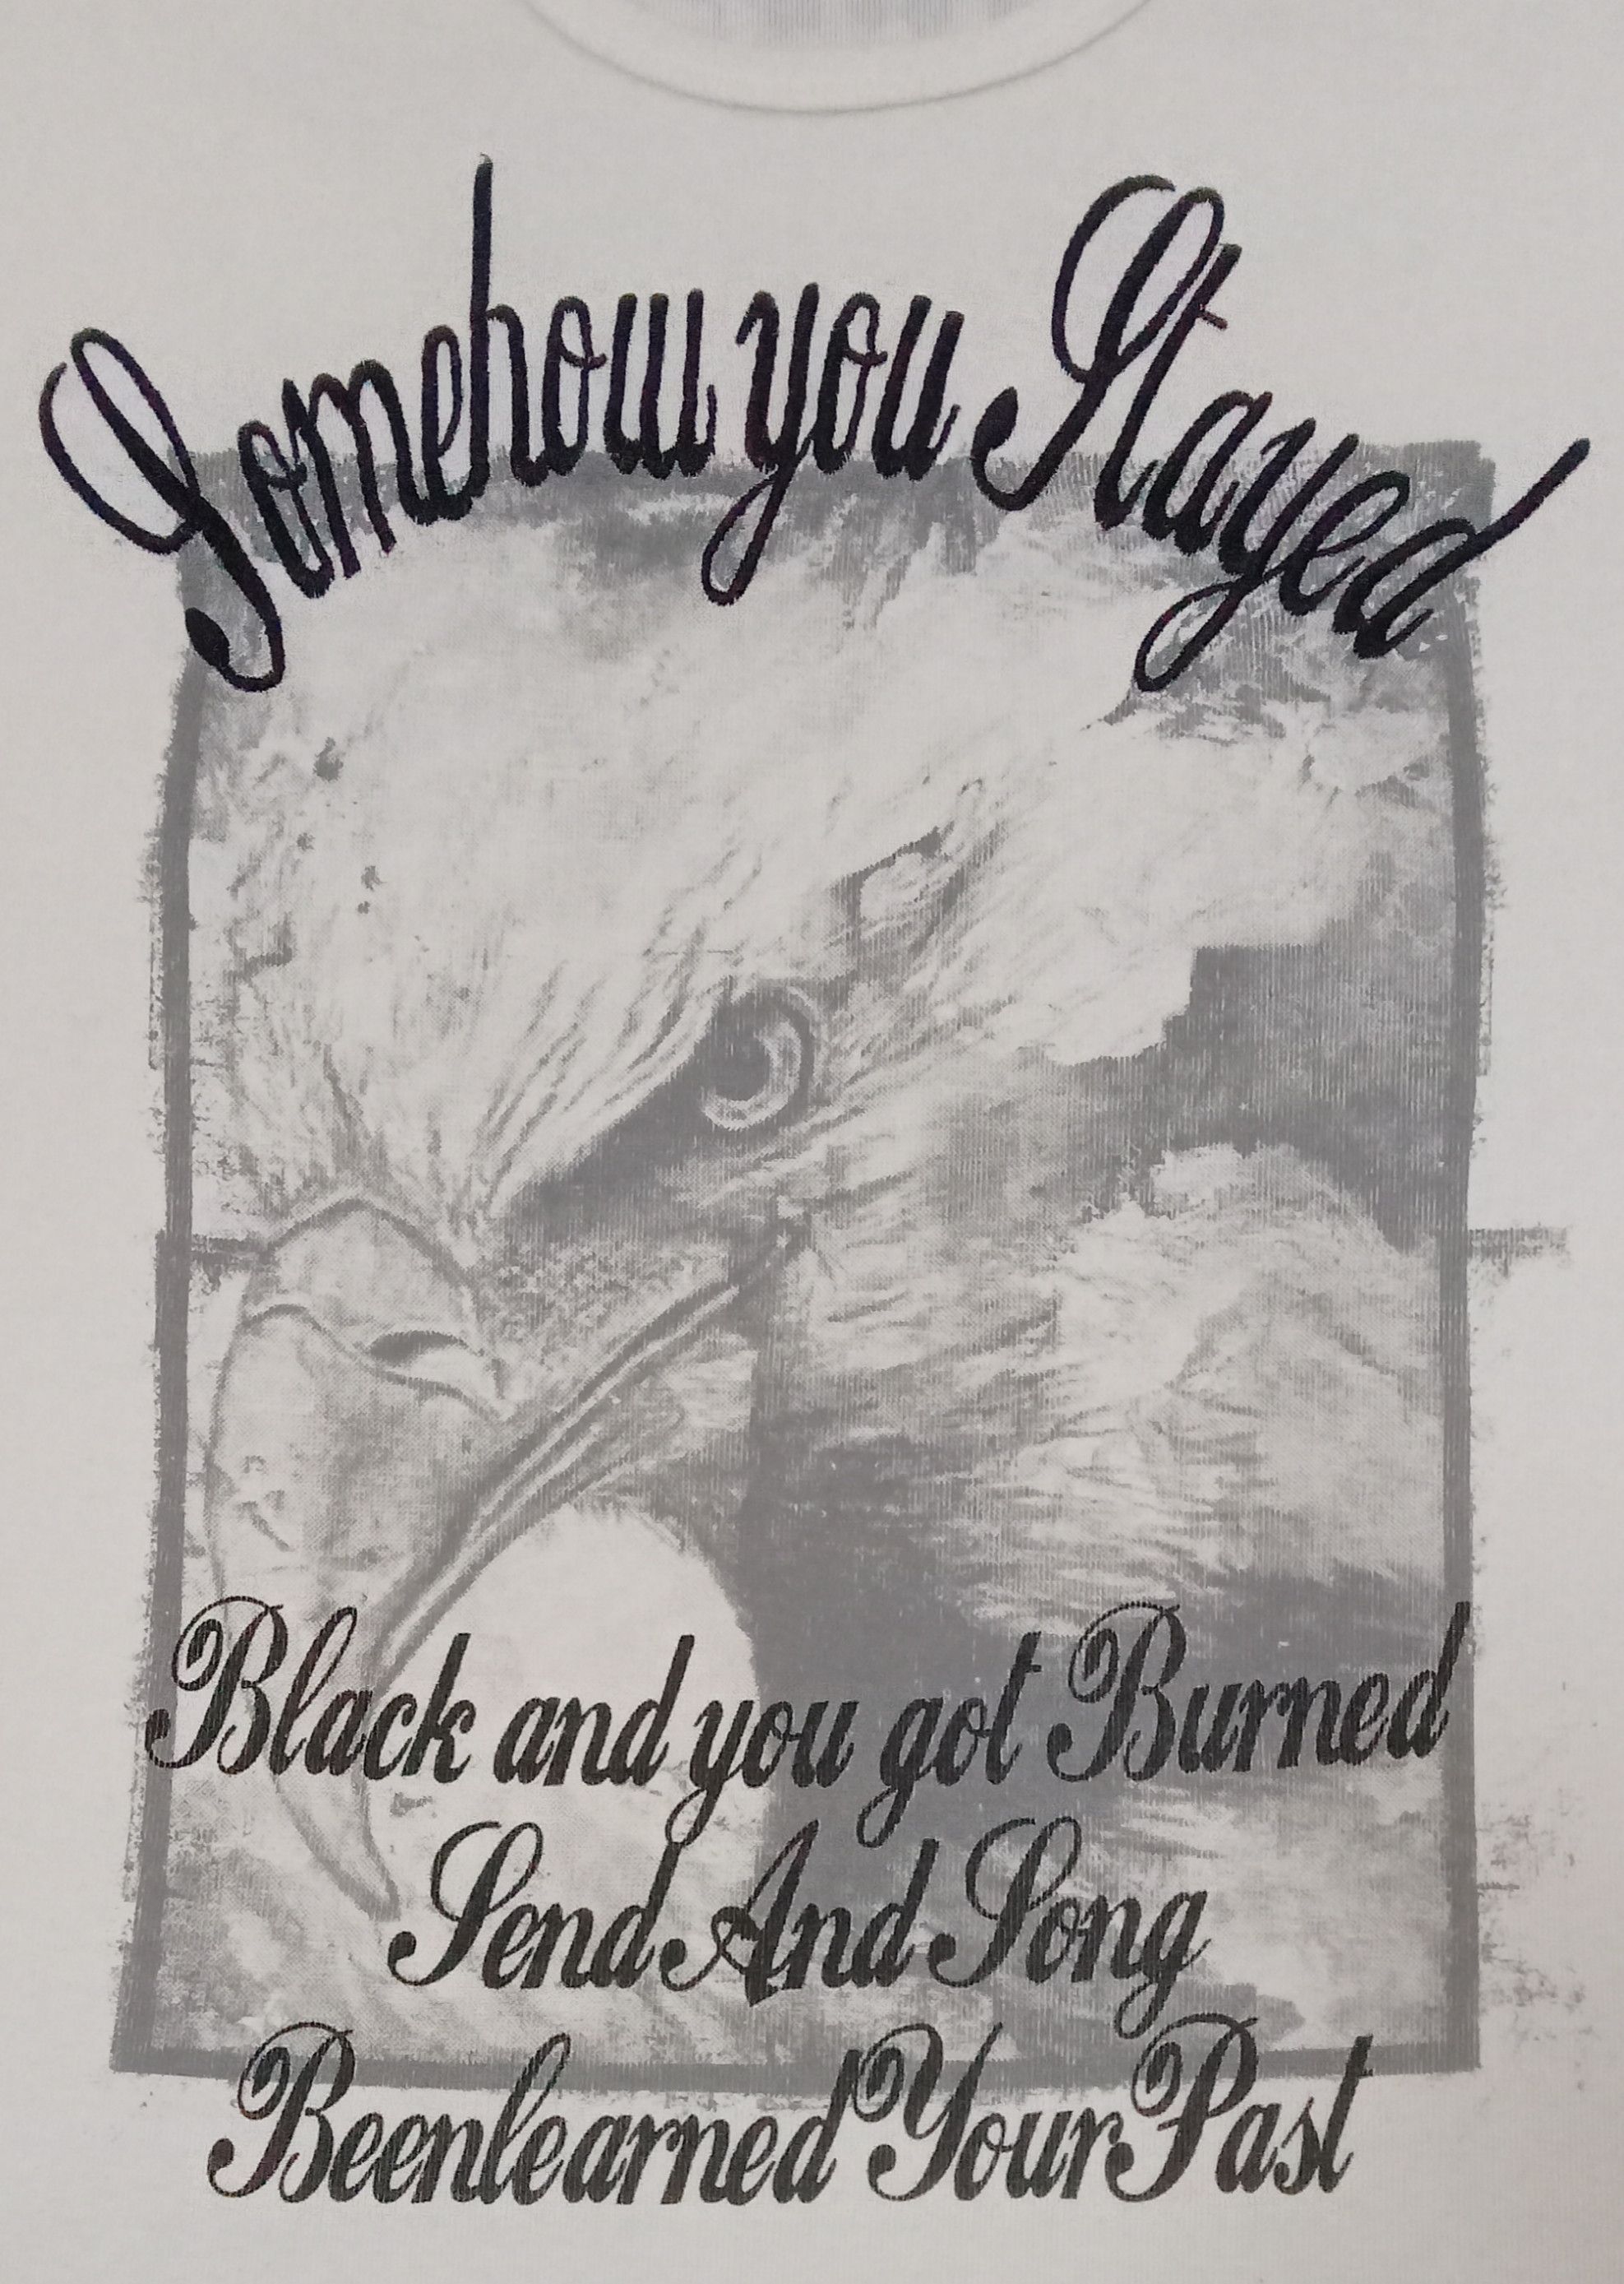 Somehow you Stayed
Black and you got Burned
Send And Song
Beenlearned Your Past